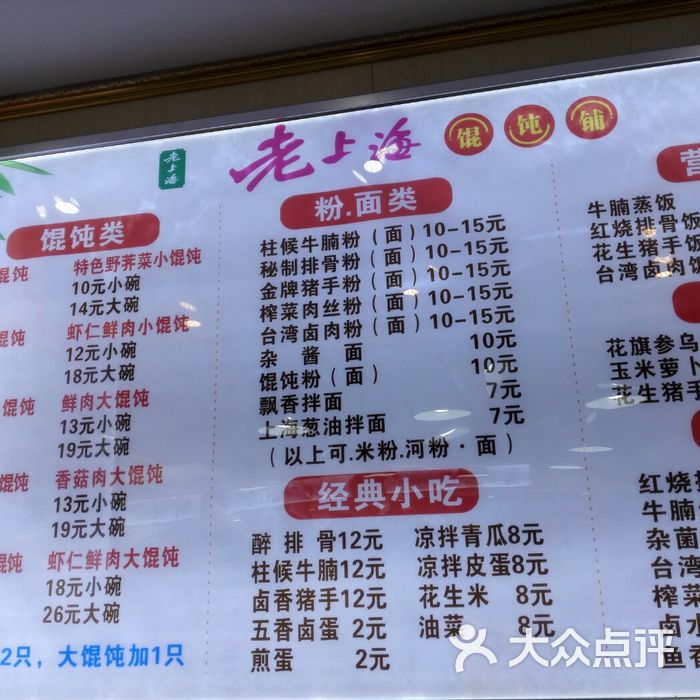 老上海
老上海 馄饨铺
馄饨类
馄饨 特色野荠菜小馄饨
10元小碗
14元大碗
馄饨 虾仁鲜肉小馄饨
12元小碗
18元大碗
馄饨 鲜肉大馄饨
13元小碗
19元大碗
馄饨 香菇肉大馄饨
13元小碗
19元大碗
馄饨 虾仁鲜肉大馄饨
18元小碗
26元大碗
2只，大馄饨加1只
粉.面类
柱候牛腩粉（面）10-15元
秘制排骨粉（面）10-15元
金牌猪手粉（面）10-15元
榨菜肉丝粉（面）10-15元
台湾卤肉粉（面）10-15元
杂酱面 10元
馄饨粉（面） 10元
飘香拌面 7元
上海葱油拌面 7元
（以上可.米粉.河粉·面）
经典小吃
醉排骨12元 凉拌青瓜8元
柱候牛腩12元 凉拌皮蛋8元
卤香猪手12元 花生米 8元
五香卤蛋 2元 油菜 8元
煎蛋 2元
营
牛腩蒸饭
红烧排骨饭
花生猪手饭
台湾卤肉饭
花旗参乌
玉米萝卜
花生猪手
红烧排
牛腩
杂菌
台湾
榨菜
卤水
鱼香
大众点评